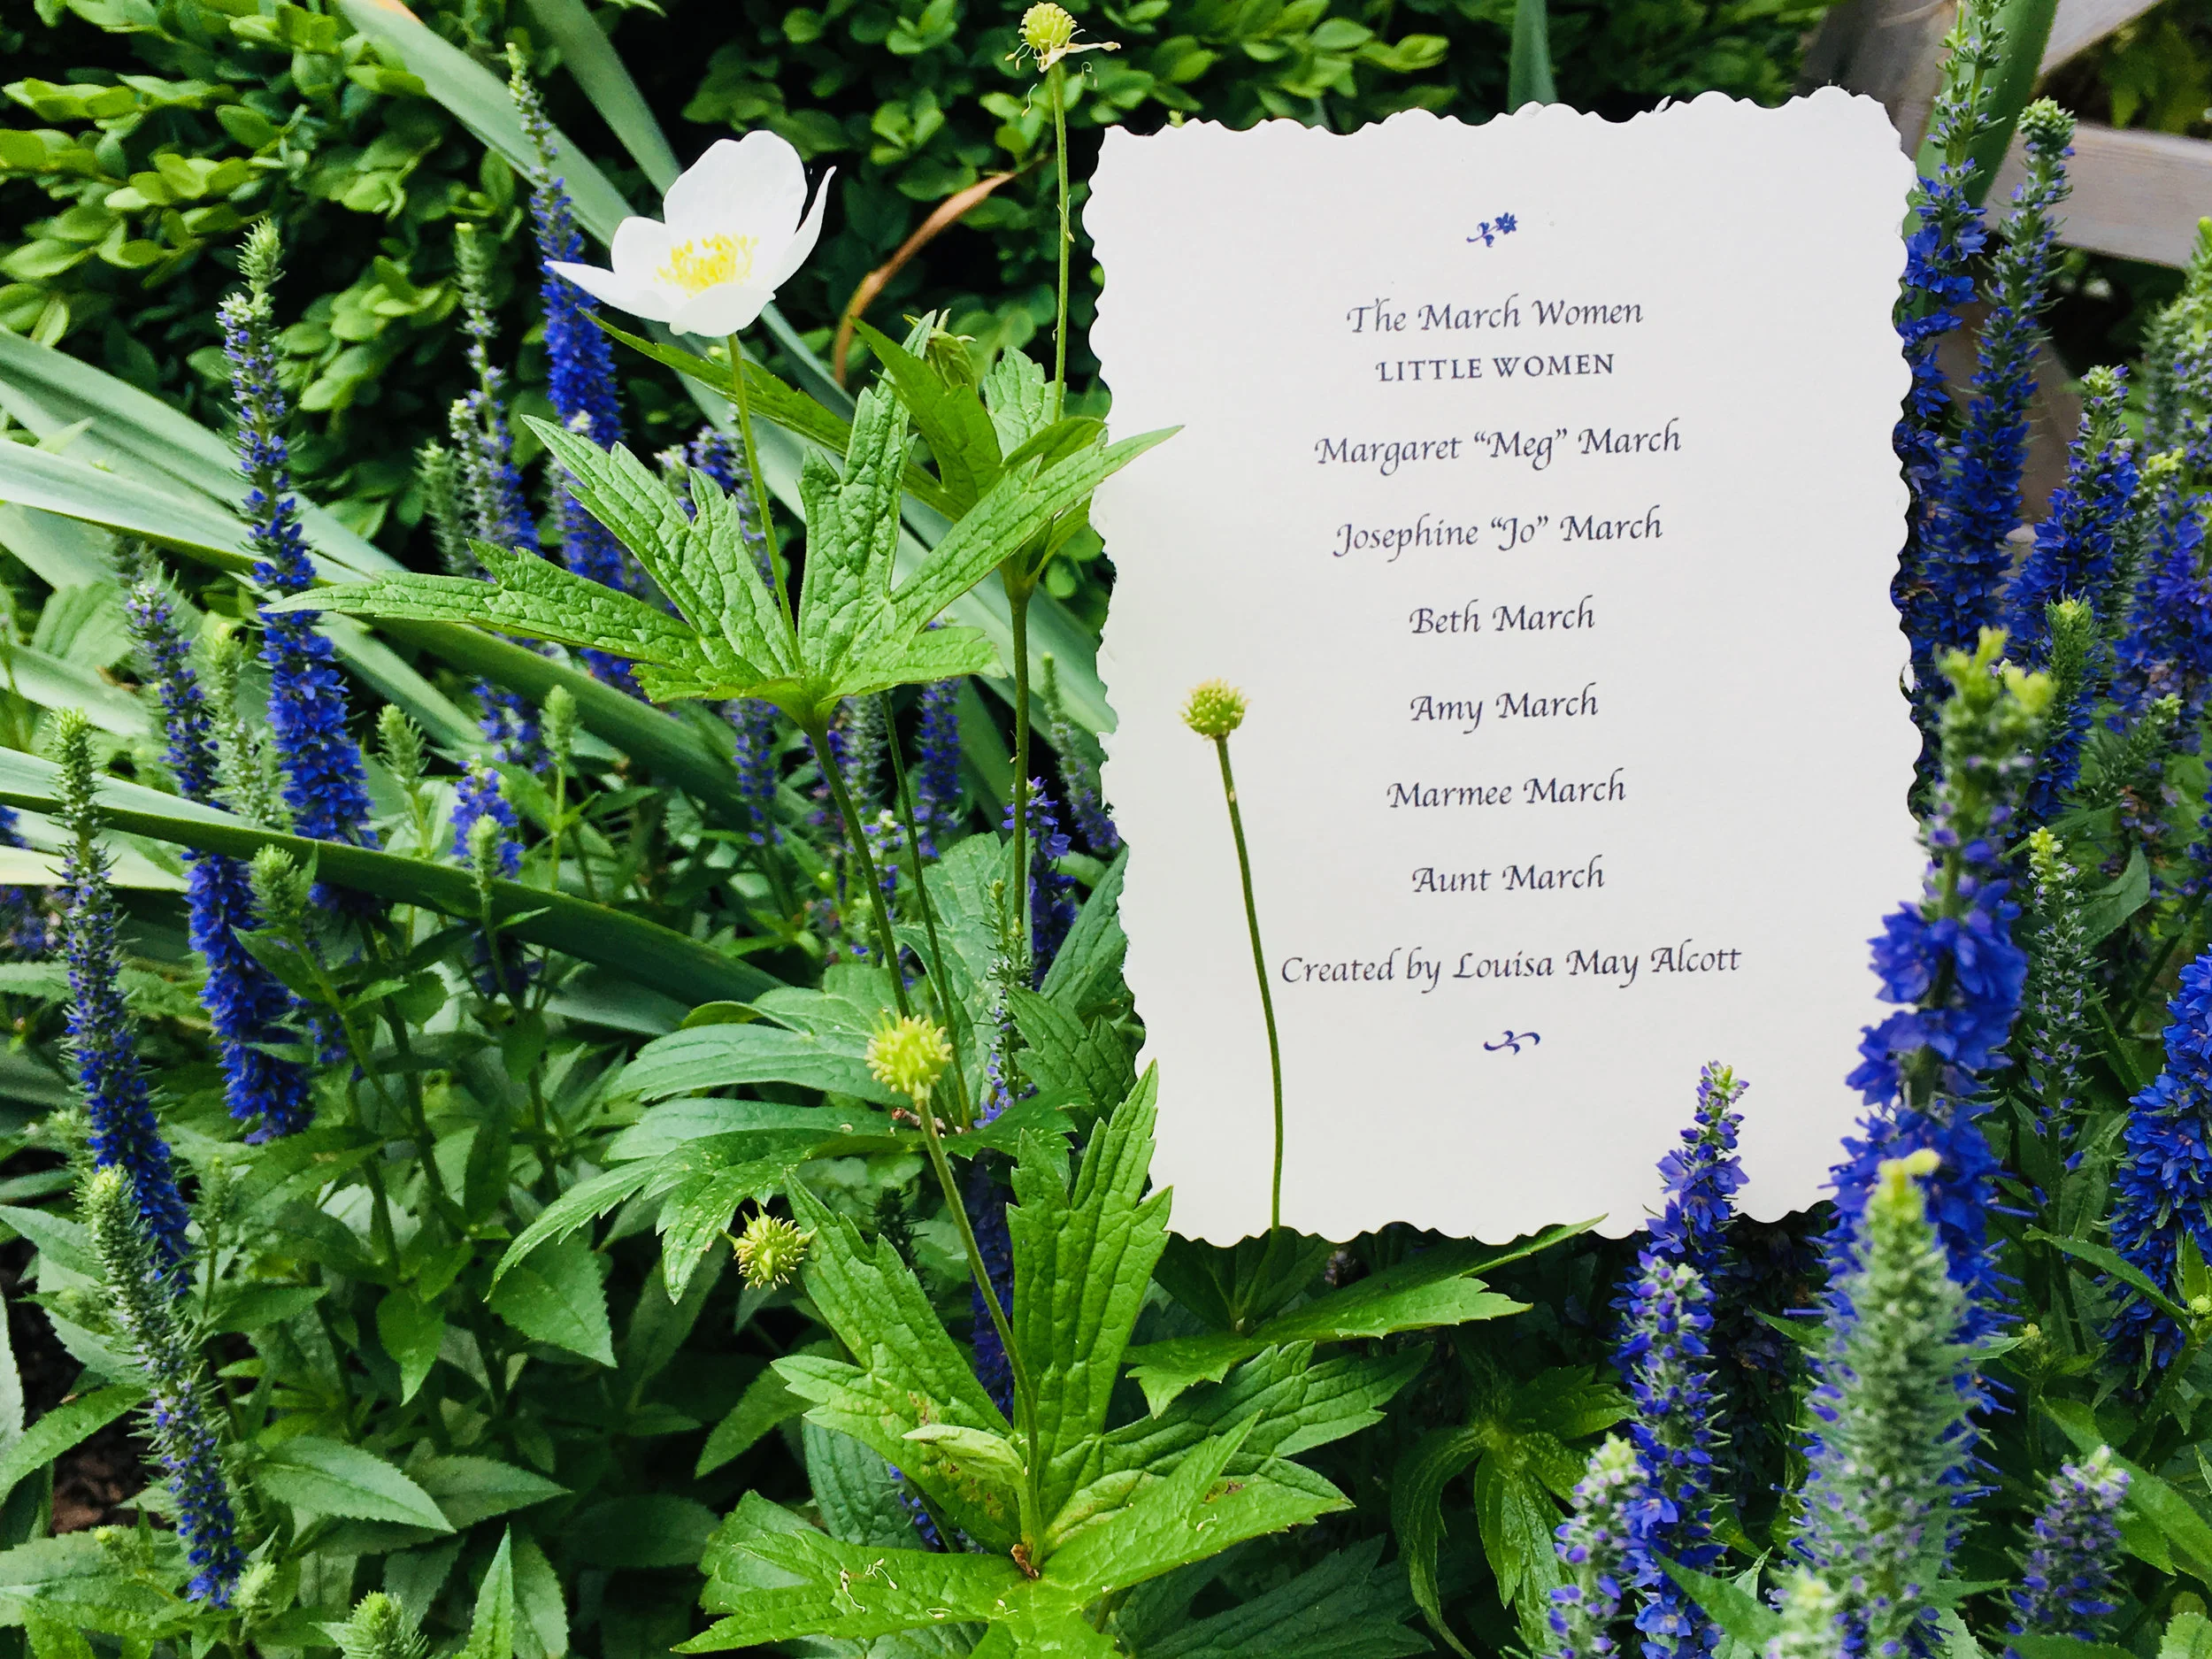 The March Women
LITTLE WOMEN
Margaret “Meg” March
Josephine “Jo” March
Beth March
Amy March
Marmee March
Aunt March
Created by Louisa May Alcott